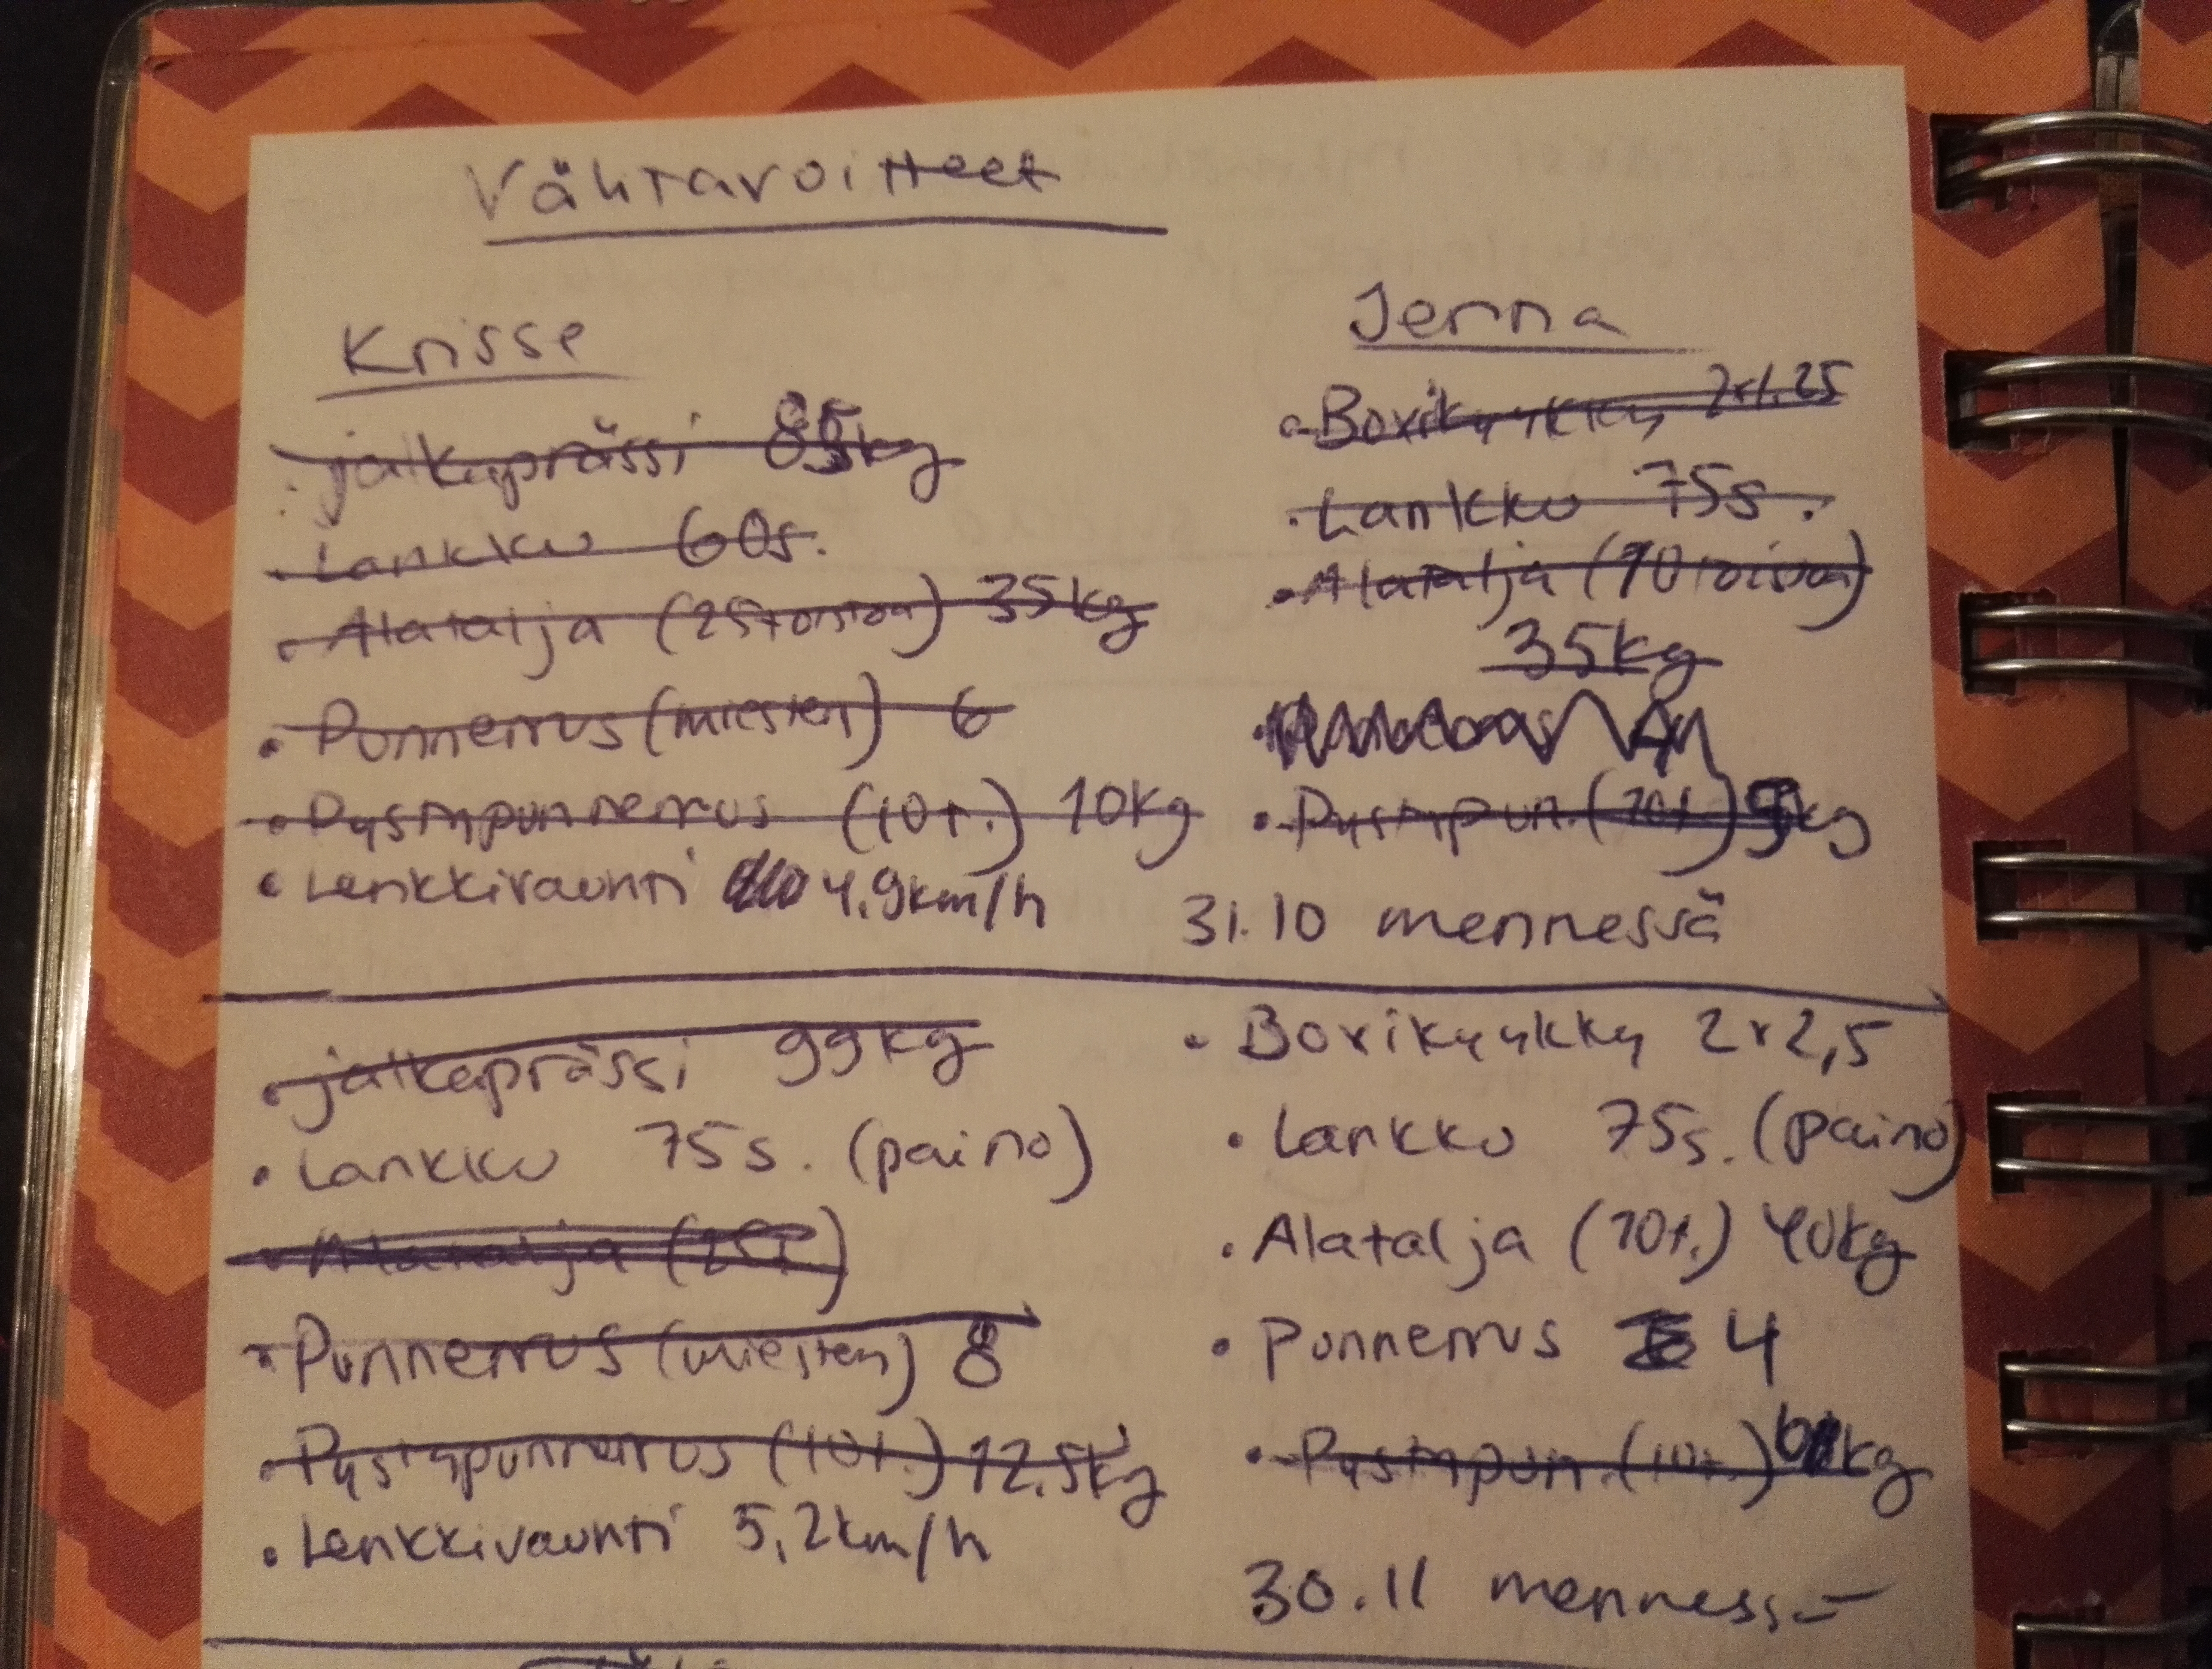 Vähtavoitteet
Krisse
jalkaprässi 85kg
• Lankku 60s.
• Alatalja (25 toistoa) 35kg
• Punnerrus (miesten) 6
• Pystypunnerrus (10t.) 10kg
• Lenkkivauhti 4,9km/h
Jenna
• Boxikyykky 2x1.25
• Lankku 75s.
• Alatalja (10 toistoa)
35kg
• Pystypun. (10t.) kg
31.10 mennessä
• jalkaprässi 99kg
• Lankku 75s. (paino)
• Alatalja (25t)
• Punnerrus (miesten) 8
• Pystypunnerrus (10t.) 12,5kg
• Lenkkivauhti 5,2km/h
• Boxikyykky 2x2,5
• Lankku 75s. (paino)
• Alatalja (10t.) 40kg
• Punnerrus 4
• Pystypun. (10t.) 6kg
30.11 mennessä